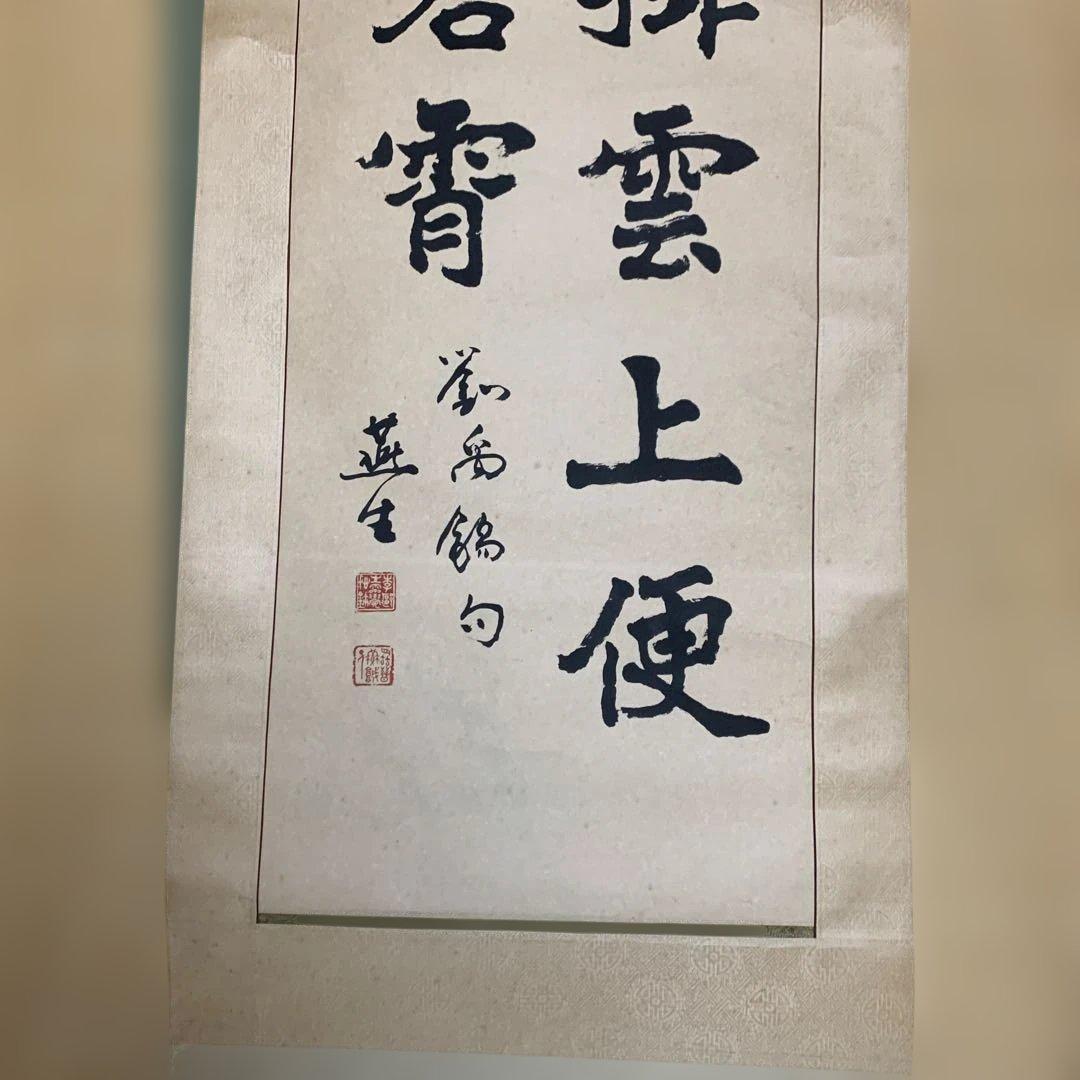 排雲上便
碧霄
劉禹錫句
燕生